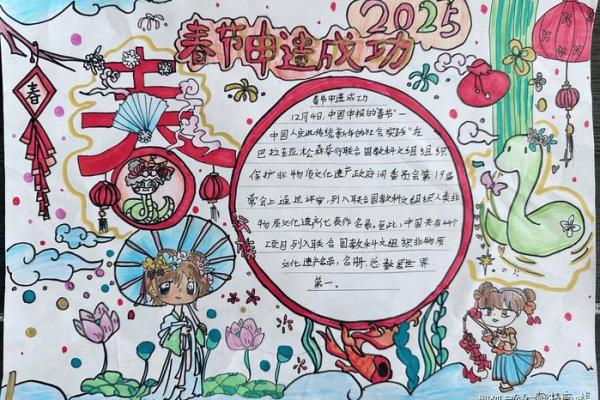 2025
春节申遗成功
春
春
春节申遗成功
12月4日,中国申报的"春节—
中国人庆祝传统新年的社会实践"在
巴拉圭亚松森举行联合国教科文组织
保护非物质文化遗产政府间委员会第19届
常会上通过评审,列入联合国教科文组织人类非
物质文化遗产代表作名录。至此,中国共有44个
项目列入联合国教科文组织非物质
文化遗产名录、名册,总数居世界
第一。